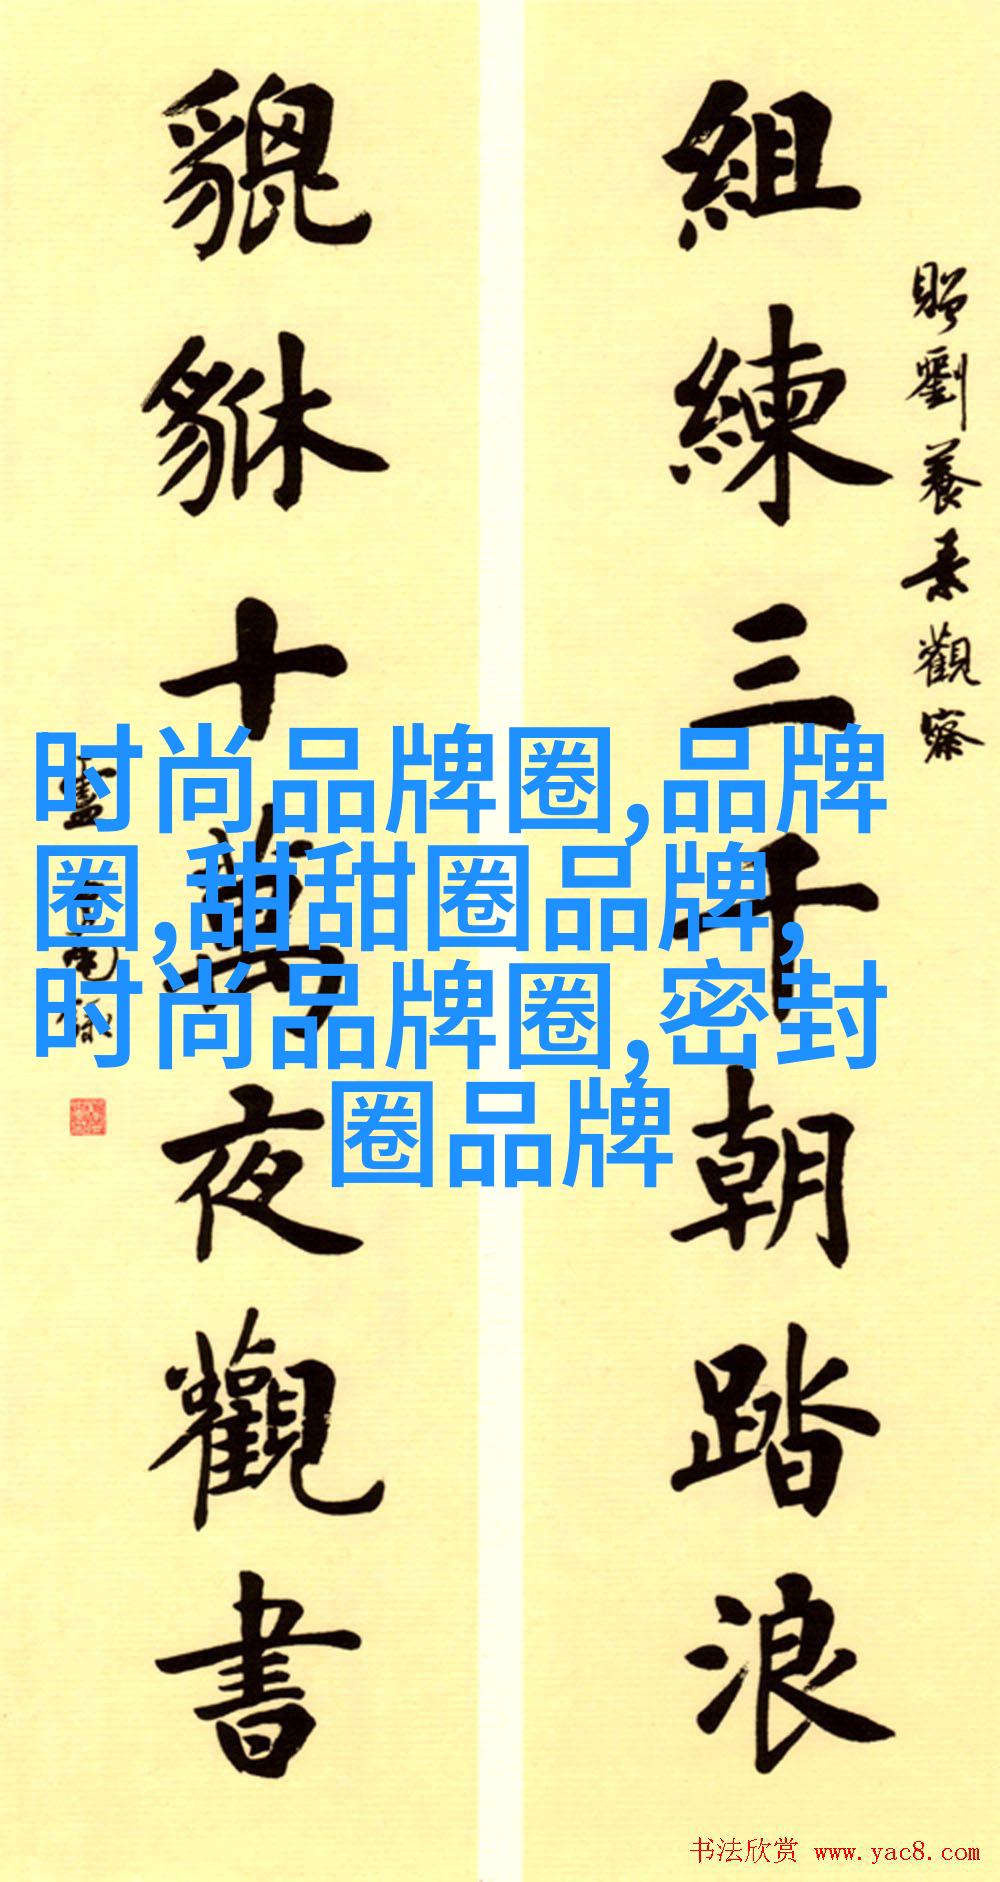 贈劉養素觀察
組練三千朝踏浪
貔貅十萬夜觀書
时尚品牌圈,品牌
圈,甜甜圈品牌,
时尚品牌圈,密封
圈品牌
书法欣赏 www.yac8.com